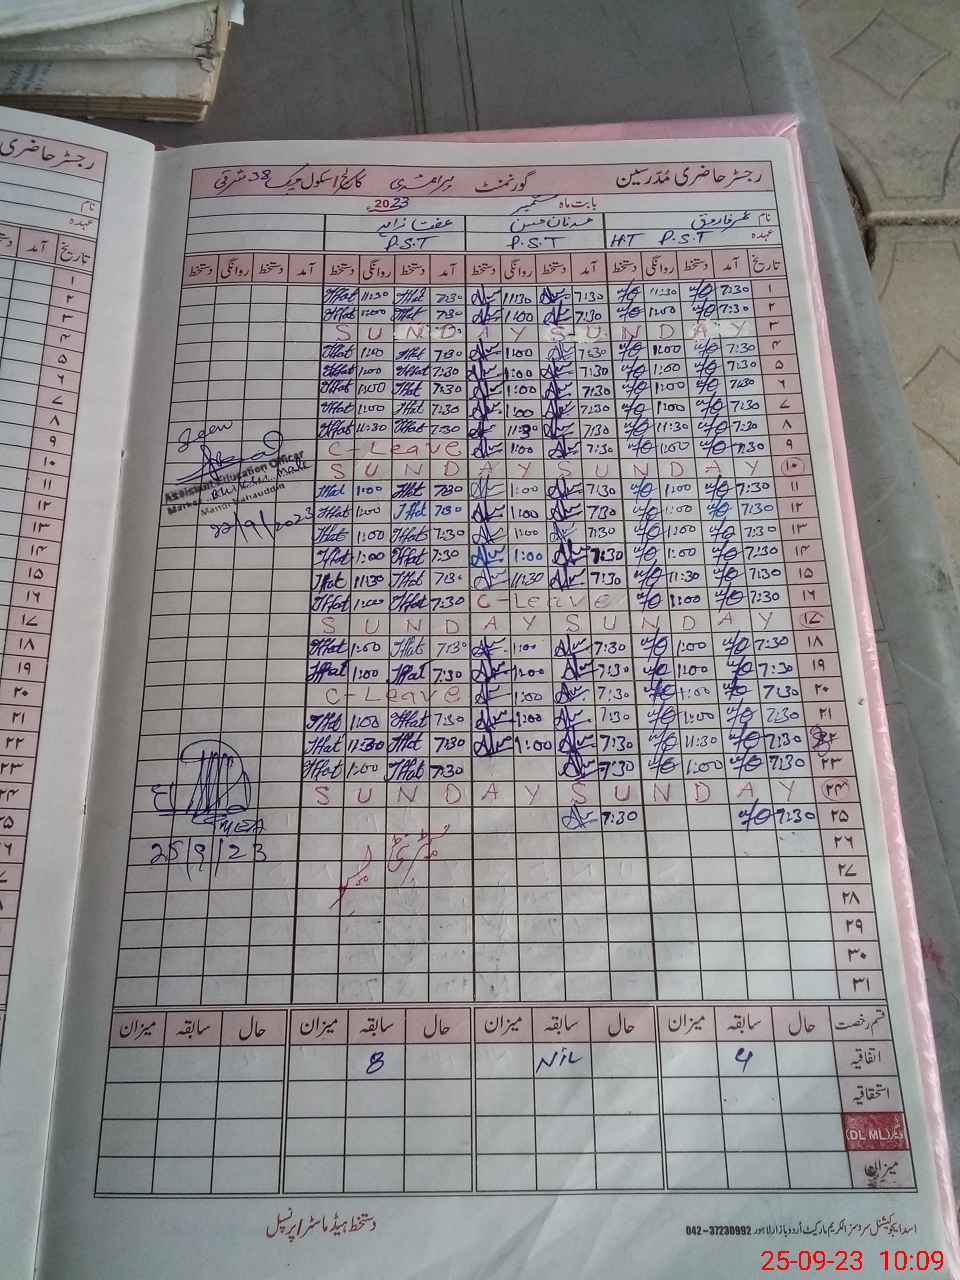 رجسٹر حاضری مدرسین گورنمنٹ پرائمری اسکول چک 38 شرقی
بابت ماہ ستمبر 2023ء
نام عمر فاروق عدنان حسن عفت زاہد
عہدہ P.S.T H.T P.S.T P.S.T
تاریخ آمد دستخط روانگی دستخط آمد دستخط روانگی دستخط آمد دستخط روانگی دستخط آمد دستخط روانگی دستخط
۱ 7:30 11:30 7:30 11:30 7:30 11:30
۲ 7:30 1:00 7:30 1:00 7:30 1:00
۳ SUNDAY SUNDAY
۴ 7:30 1:00 7:30 1:00 7:30 1:00
۵ 7:30 1:00 7:30 1:00 7:30 1:00
۶ 7:30 1:00 7:30 1:00 7:30 1:00
۷ 7:30 1:00 7:30 1:00 7:30 1:00
۸ 7:30 11:30 7:30 11:30 7:30 11:30
۹ 7:30 1:00 7:30 1:00 C-Leave
۱۰ SUNDAY SUNDAY
۱۱ 7:30 1:00 7:30 1:00 7:30 1:00
۱۲ 7:30 1:00 7:30 1:00 7:30 1:00
۱۳ 7:30 1:00 7:30 1:00 7:30 1:00
۱۴ 7:30 1:00 7:30 1:00 7:30 1:00
۱۵ 7:30 11:30 7:30 11:30 7:30 11:30
۱۶ 7:30 1:00 C-Leave 7:30 1:00
۱۷ SUNDAY SUNDAY
۱۸ 7:30 1:00 7:30 1:00 7:30 1:00
۱۹ 7:30 1:00 7:30 1:00 7:30 1:00
۲۰ 7:30 1:00 7:30 1:00 C-Leave
۲۱ 7:30 1:00 7:30 1:00 7:30 1:00
۲۲ 7:30 11:30 7:30 1:00 7:30 11:30
۲۳ 7:30 1:00 7:30 7:30 1:00
۲۴ SUNDAY SUNDAY
۲۵ 7:30 7:30
۲۶
۲۷
۲۸
۲۹
۳۰
۳۱
Seen
Assistant Education Officer
Mandi Bahauddin
22/9/2023
25/9/23
قسم رخصت حال سابقہ میزان حال سابقہ میزان حال سابقہ میزان حال سابقہ میزان
اتفاقیہ 4 NIL 8
استحقاقیہ
دیگر (DL ML)
میزان
اسد ایجوکیشنل سروسز الکریم مارکیٹ اُردو بازار لاہور 042-37230992
دستخط ہیڈ ماسٹر/پرنسپل
رجسٹر حاضری
نام
عہدہ
تاریخ آمد
۱
۲
۳
۴
۵
۶
۷
۸
۹
۱۰
۱۱
۱۲
۱۳
۱۴
۱۵
۱۶
۱۷
۱۸
۱۹
۲۰
۲۱
۲۲
۲۳
۲۴
۲۵
۲۶
۲۷
۲۸
۲۹
۳۰
۳۱
25-09-23 10:09